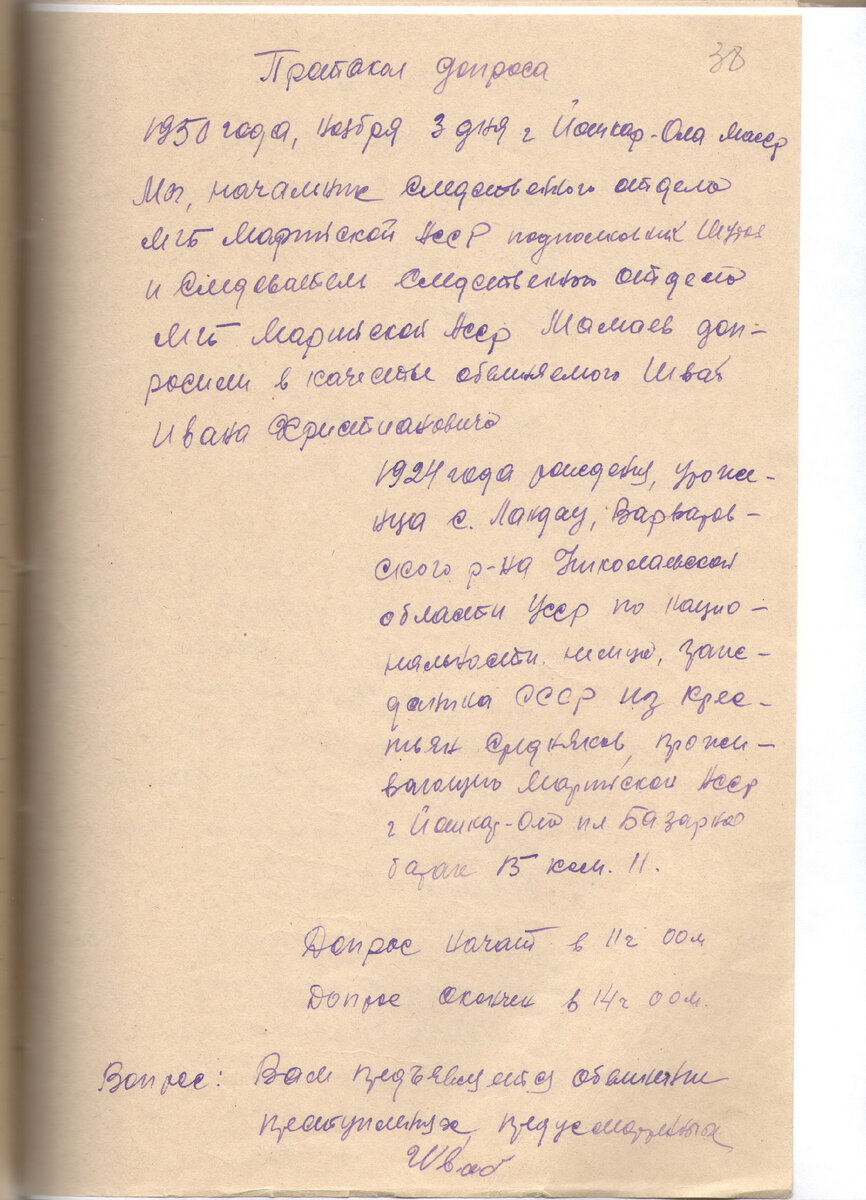 38
Протокол допроса
1950 года, ноября 3 дня г Йошкар-Ола Масср
Мы, начальник следственного отдела
МГБ Марийской АССР подполковник
и следователем следственного отдела
МГБ Марийской АССР Мамаев доп-
росили в качестве обвиняемого Шваб
Ивана Христиановича
1924 года рождения, уроже-
нца с. Ландау, Варваров-
ского р-на Николаевской
области УССР по нацио-
нальности немца, граж-
данина СССР из крес-
тьян средняков, прожи-
вающего Марийской АССР
г Йошкар-Ола пл Базарная
барак 15 ком. 11.
Допрос начат в 11ч 00м
Допрос окончен в 14ч 00м.
Вопрос: Вам предъявляется обвинение
преступлениях, предусмотренных
Шваб